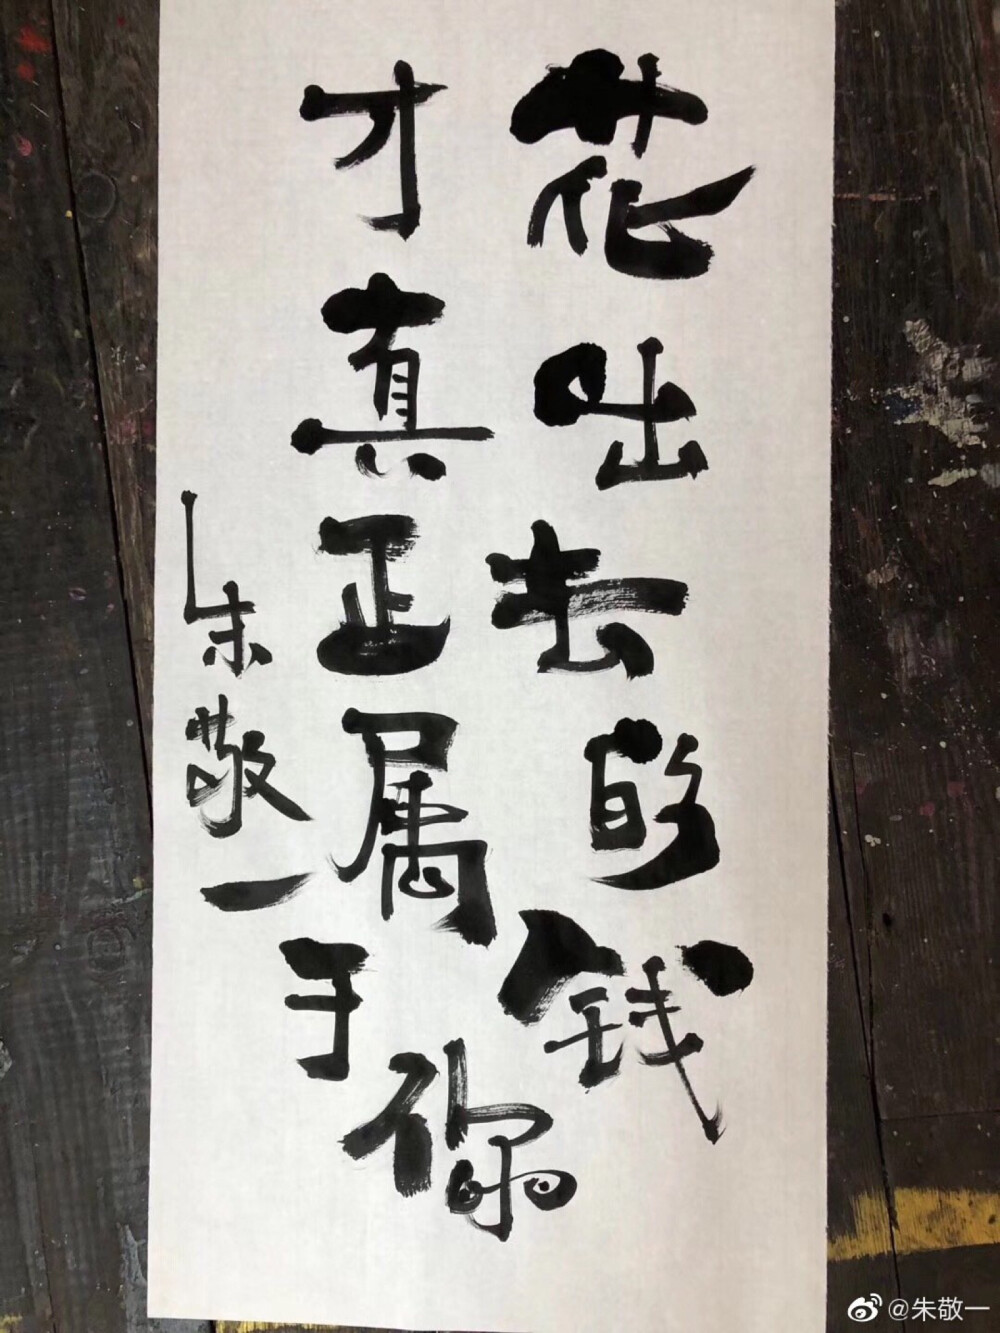 花出去的钱
才真正属于你
朱敬一
@朱敬一